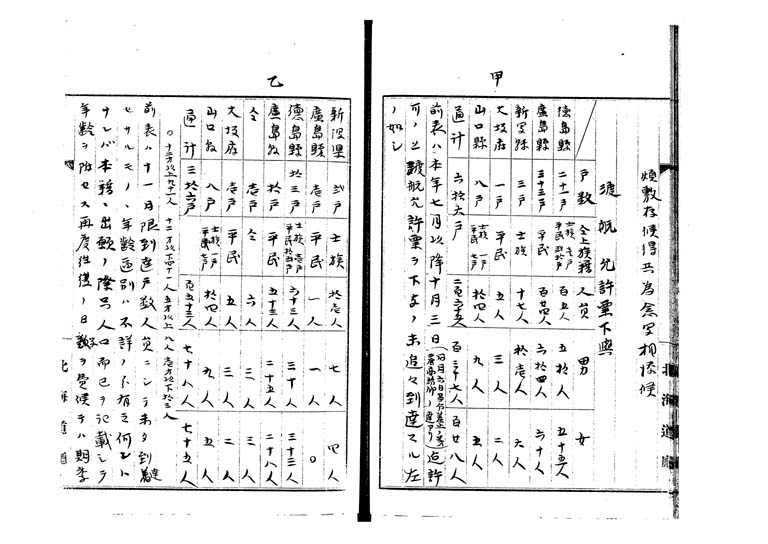 甲
煩敷存候得共為念写相添候
渡航允許票下與
戸数 仝上族籍 人員 男 女
徳島縣 二十一戸 士族 壱戸 平民 弐拾戸 百五人 五拾人 五十五人
廣島縣 三十三戸 平民 百廿四人 六拾四人 六十人
新潟縣 三戸 士族 十七人 拾壱人 六人
大坂府 一戸 平民 五人 三人 二人
山口縣 八戸 士族 一戸 平民 七戸 拾四人 九人 五人
通計 六拾六戸 二百六十五人 百三十七人 百廿八人
前表ハ本年七月以降十月三日
迄許
可ノ上渡航允許票ヲ下与ノ未追々到達スル左
ノ如シ
北海道廳
乙
新潟県 弐戸 士族 拾壱人 七人 四人
廣島縣 壱戸 平民 一人 一人 〇
徳島縣 拾三戸 士族 壱戸 六十三人 三十人 三十三人
廣島縣 拾戸 平民 五十三人 二十五人 二十八人
仝 壱戸 仝 六人 三人 三人
大坂府 壱戸 平民 五人 三人 二人
山口縣 八戸 士族 一戸 平民 七戸 拾四人 九人 五人
通計 三拾六戸 百五十三人 七十八人 七十五人
前表ハ十一月限到達戸数人員ニシテ未タ到着
セサルモノ、年齢区別ハ不詳ニ有之何レト
ナレバ本籍ニ出願ノ際只人口而已ヲ記載シテ
年齢ヲ附セス再度往復ノ日数ヲ費候テハ期季
北海道廳